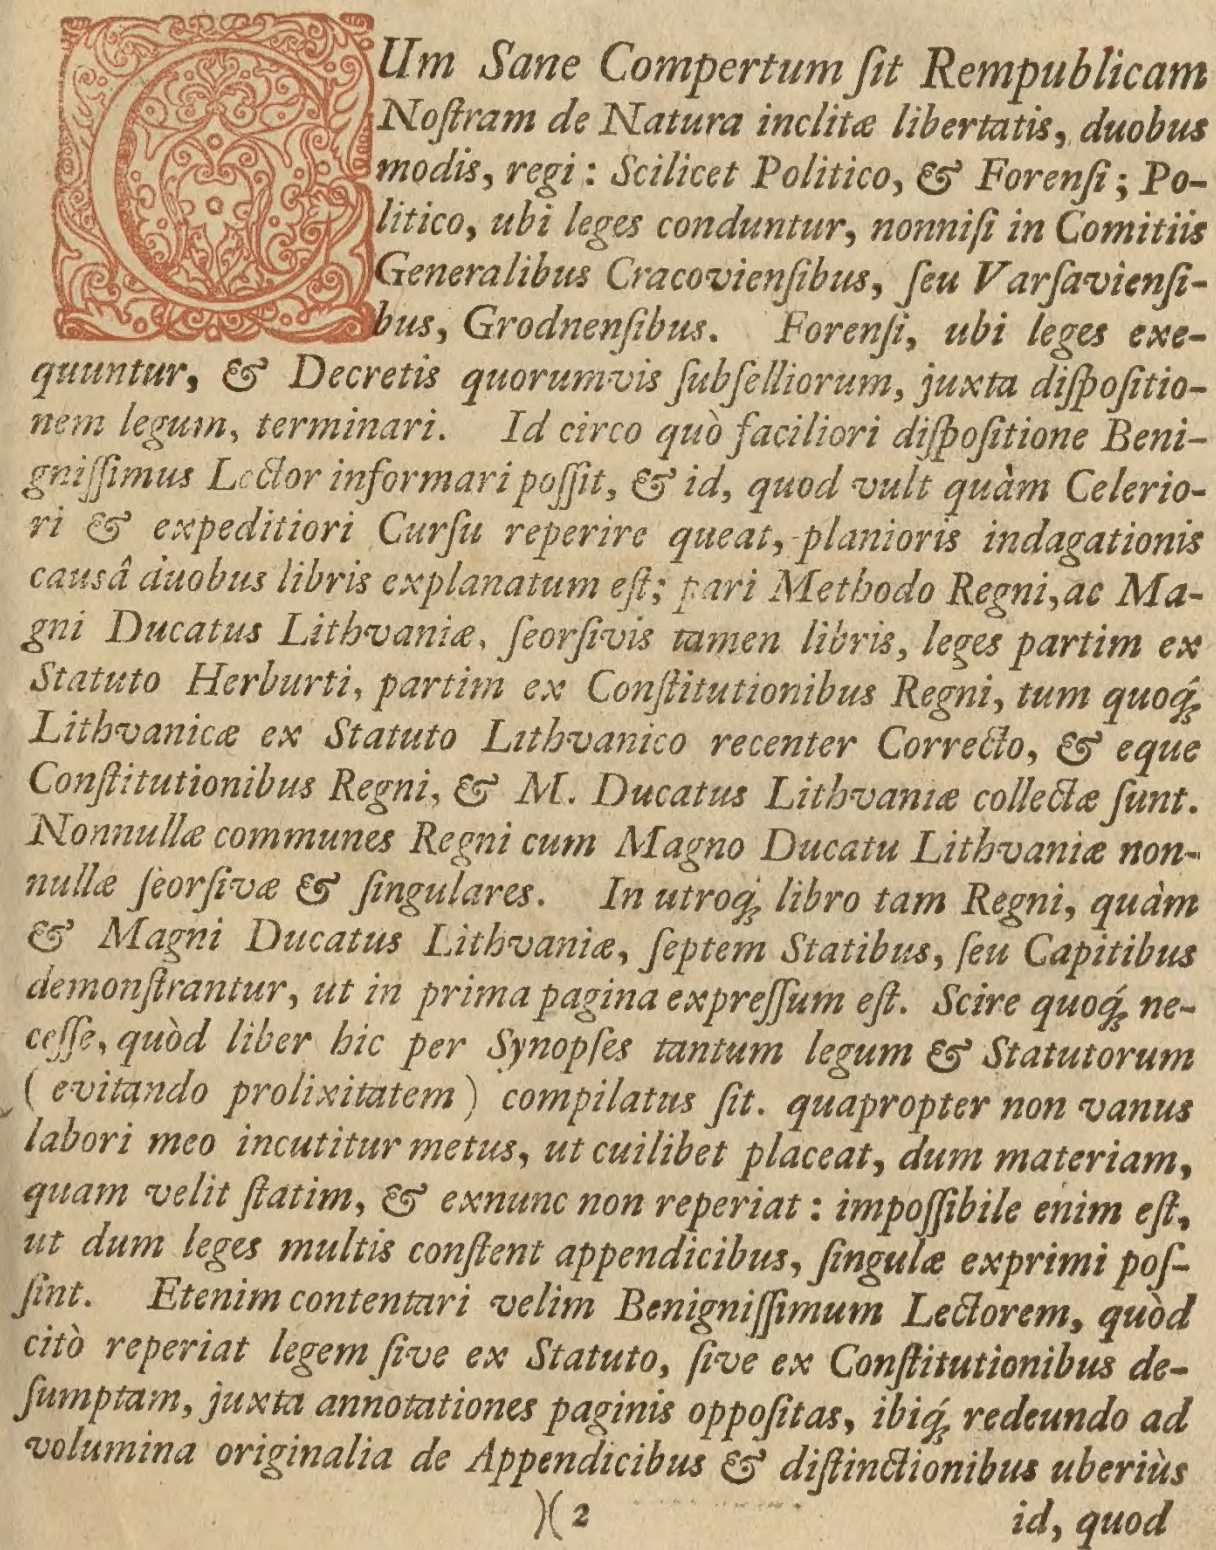 CUm Sane Compertum ſit Rempublicam
Noſtram de Natura inclitæ libertatis, duobus
modis, regi : Scilicet Politico, & Forenſi ; Po-
litico, ubi leges conduntur, nonniſi in Comitiis
Generalibus Cracovienſibus, ſeu Varſavienſi-
bus, Grodnenſibus. Forenſi, ubi leges exe-
quuntur, & Decretis quorumvis ſubſelliorum, juxta diſpoſitio-
nem legum, terminari. Id circo quò faciliori diſpoſitione Beni-
gniſſimus Lector informari poſſit, & id, quod vult quàm Celerio-
ri & expeditiori Curſu reperire queat, planioris indagationis
causâ duobus libris explanatum eſt; pari Methodo Regni, ac Ma-
gni Ducatus Lithvaniæ, ſeorſivis tamen libris, leges partim ex
Statuto Herburti, partim ex Conſtitutionibus Regni, tum quoq́;
Lithvanicæ ex Statuto Lithvanico recenter Correcto, & eque
Conſtitutionibus Regni, & M. Ducatus Lithvaniæ collectæ ſunt.
Nonnullæ communes Regni cum Magno Ducatu Lithvaniæ non-
nullæ ſeorſivæ & ſingulares. In utroq́; libro tam Regni, quàm
& Magni Ducatus Lithvaniæ, ſeptem Statibus, ſeu Capitibus
demonſtrantur, ut in prima pagina expreſſum eſt. Scire quoq́; ne-
ceſſe, quòd liber hic per Synopſes tantum legum & Statutorum
( evitando prolixitatem ) compilatus ſit. quapropter non vanus
labori meo incutitur metus, ut cuilibet placeat, dum materiam,
quam velit ſtatim, & exnunc non reperiat : impoſſibile enim eſt,
ut dum leges multis conſtent appendicibus, ſingulæ exprimi poſ-
ſint. Etenim contentari velim Benigniſſimum Lectorem, quòd
citò reperiat legem ſive ex Statuto, ſive ex Conſtitutionibus de-
ſumptam, juxta annotationes paginis oppoſitas, ibiq́; redeundo ad
volumina originalia de Appendicibus & diſtinctionibus uberiùs
)( 2 id, quod